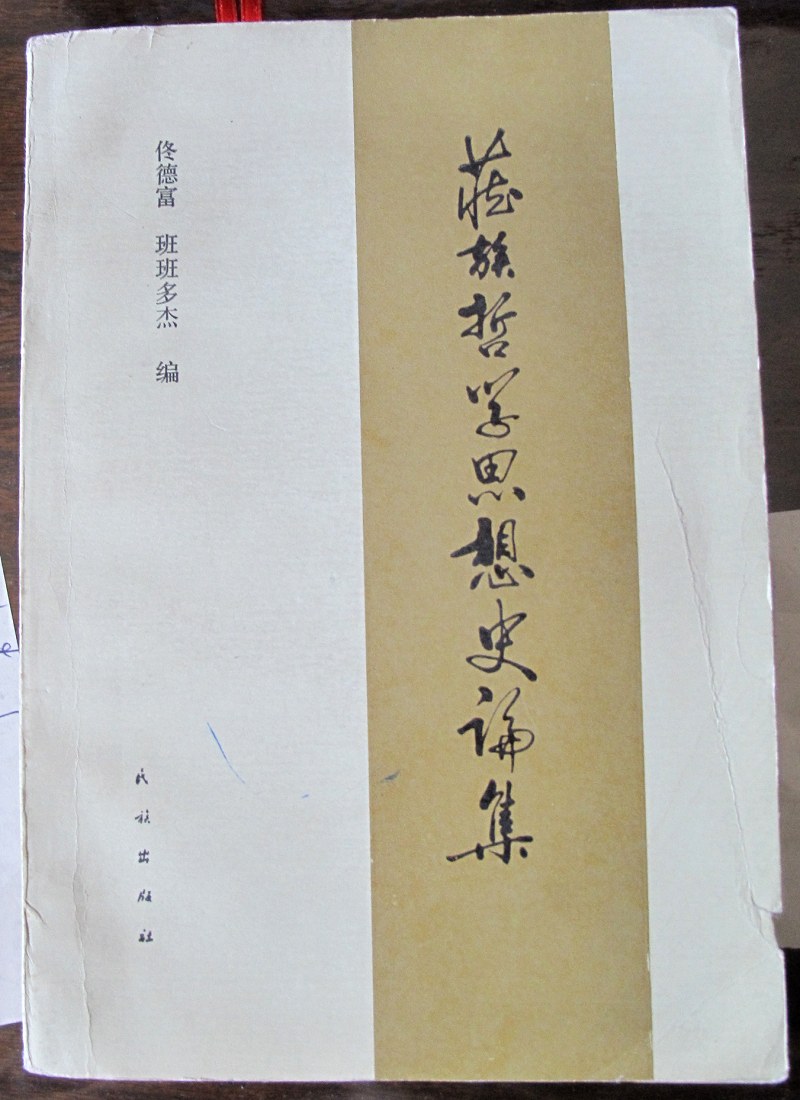 藏族哲学思想史论集
佟德富 班班多杰 编
民族出版社